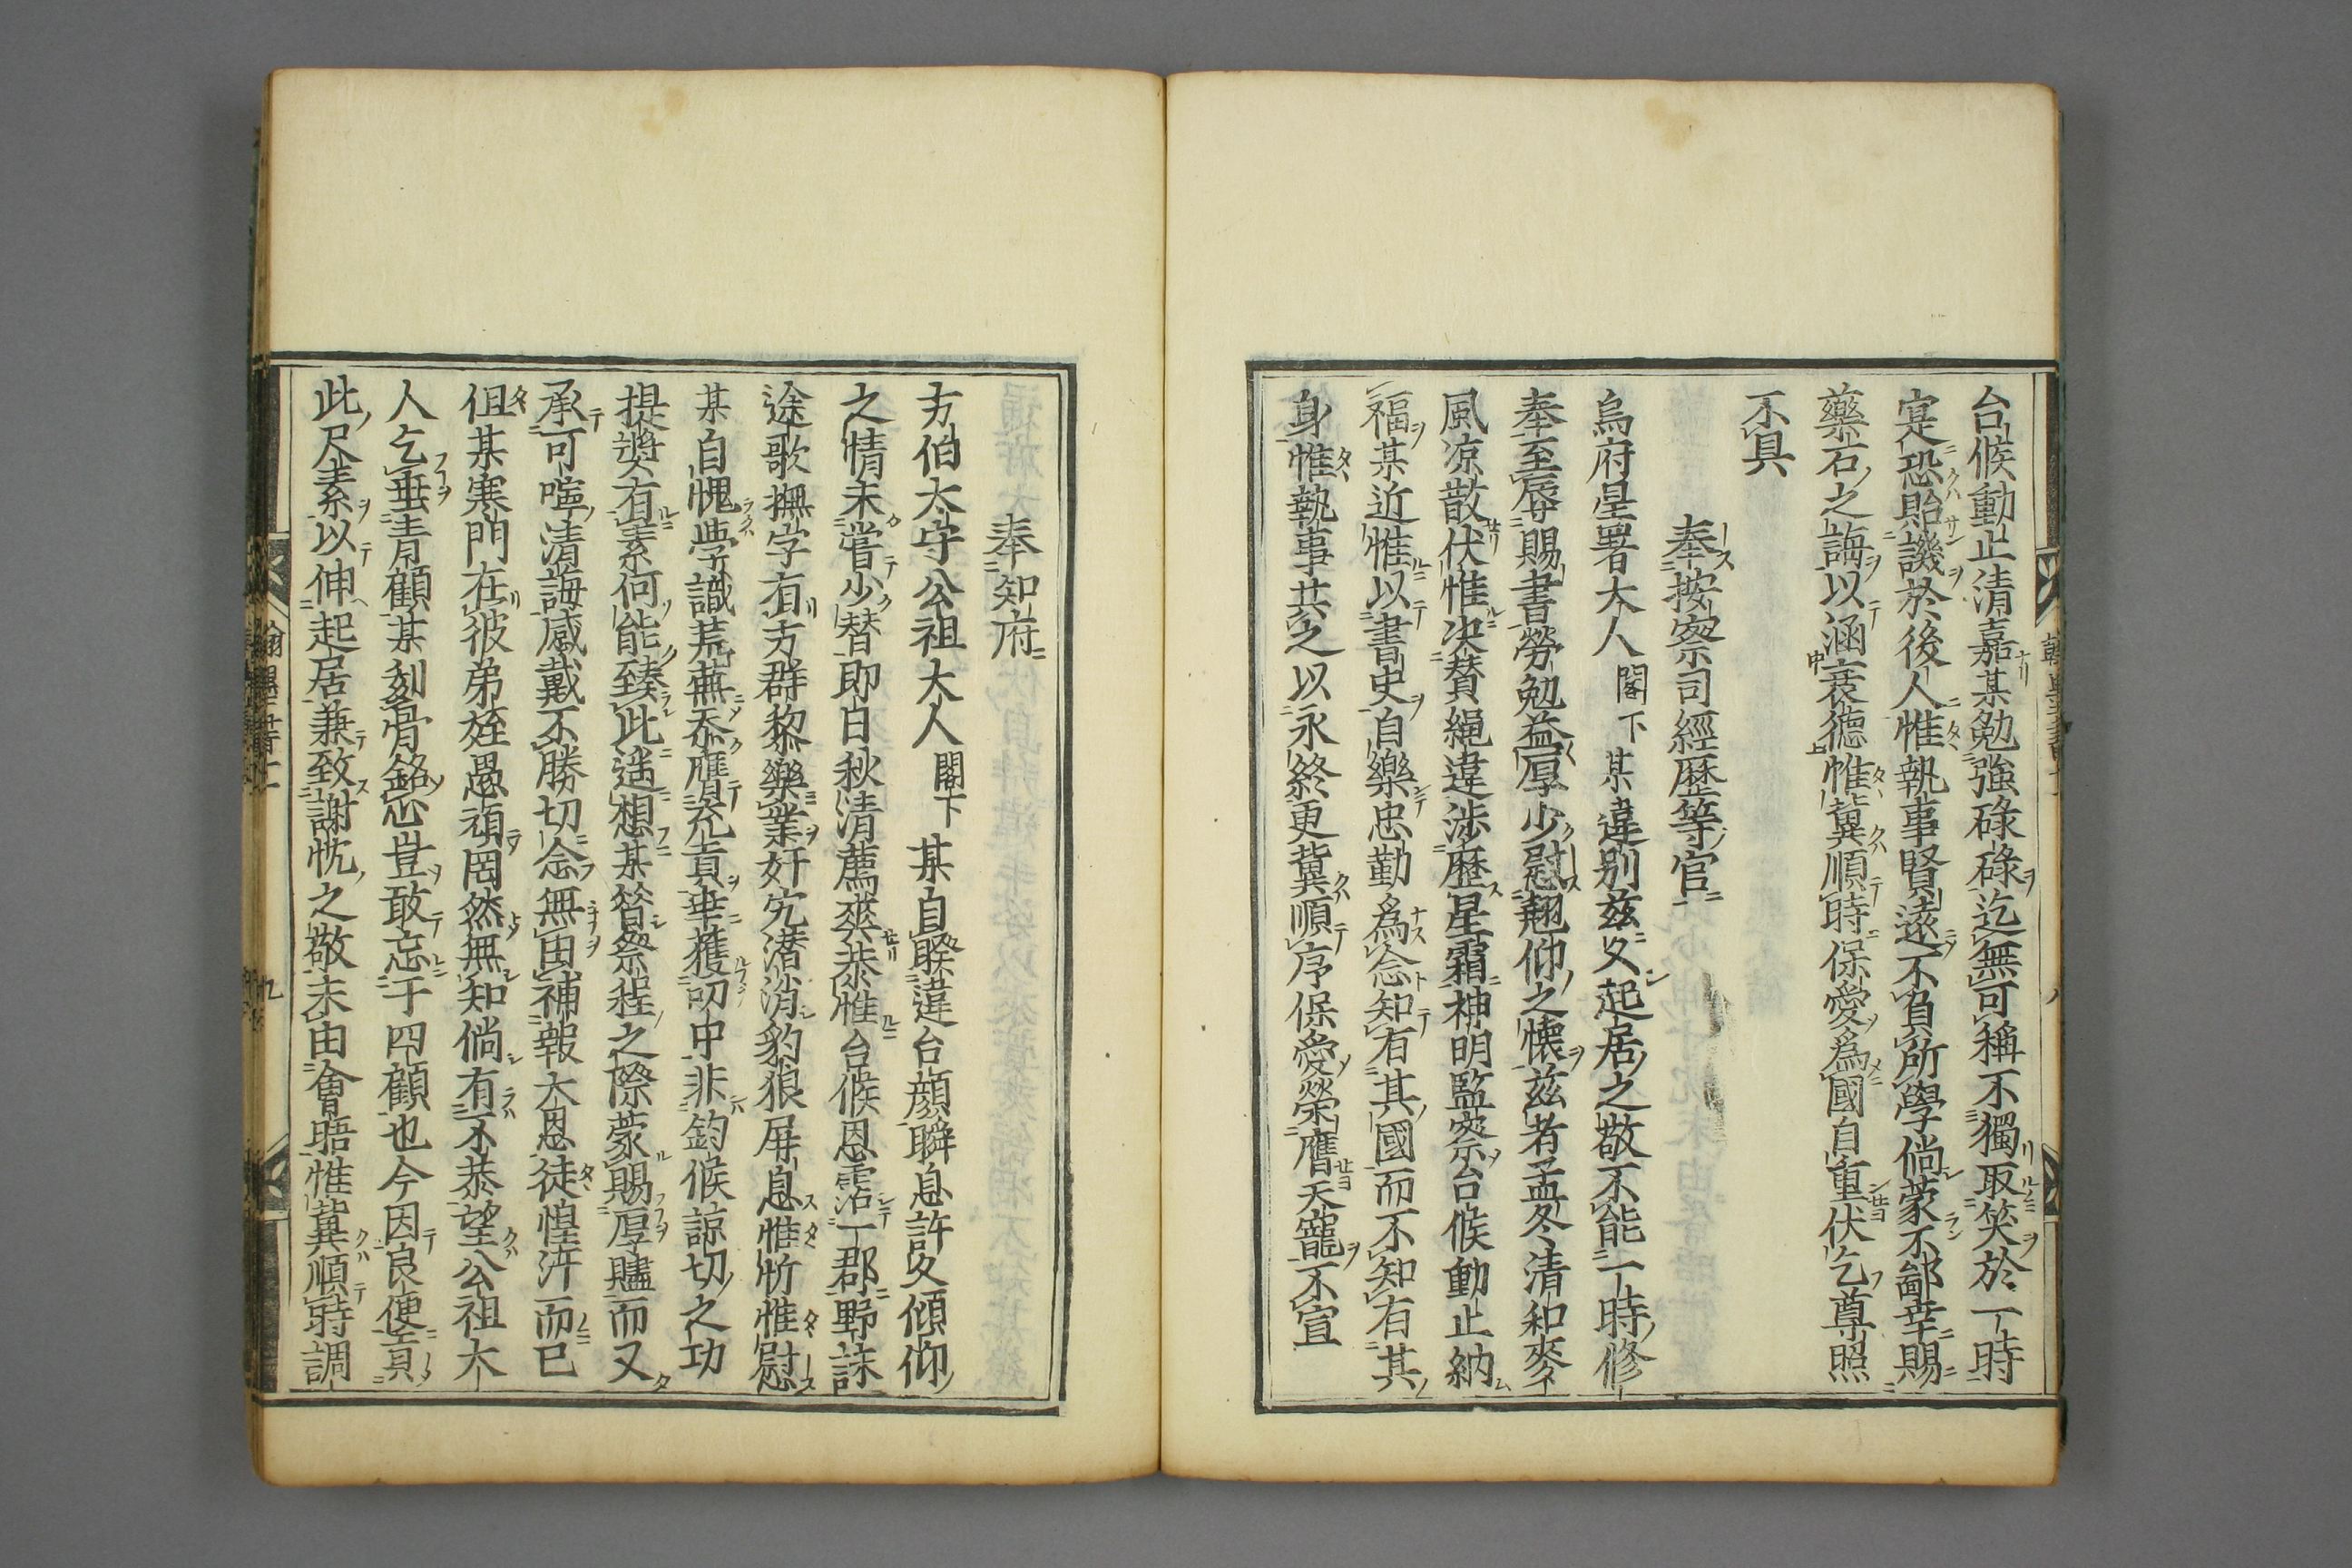 台候動止清嘉某勉強碌碌迄無可稱不獨取笑於一時
寔恐貽譏於後人惟執事賢遠不負所學倘蒙不鄙幸賜
藥石之誨以涵衰德惟冀順時保愛爲國自重伏乞尊照
不具
奉按察司經歷等官
烏府星署大人閣下某違別兹久起居之敬不能一時修
奉至辱賜書勞勉益厚少慰翹仰之懐兹者孟冬清和麥
風凉散伏惟决賛繩違涉歷星霜神明監察台候動止納
福某近惟以書史自樂忠勤爲念知有其國而不知有其
身惟執事共之以永終更冀順序保愛榮膺天寵不宣
奉知府
方伯太守公祖大人閣下某自暌違台顏瞬息許久傾仰
之情未嘗少替即日秋清薦爽恭惟台候恩霑一郡野誦
途歌撫字有方群黎樂業奸宄潜消豹狼屏息惟忻惟慰
某自愧學識荒蕪忝膺充貢幸獲叨中非鈞候諒切之功
提奬有素何能臻此遥想某簮祭程之際蒙賜厚贐而又
承可嚀清誨感戴不勝切念無由補報大恩徒惶汗而已
但某寒門在彼弟姪愚頑罔然無知倘有不恭望公祖大
人乞垂青顧某刻骨銘心豈敢忘于四顧也今因良便貢
此尺素以伸起居兼致謝忱之敬未由會晤惟冀順時調